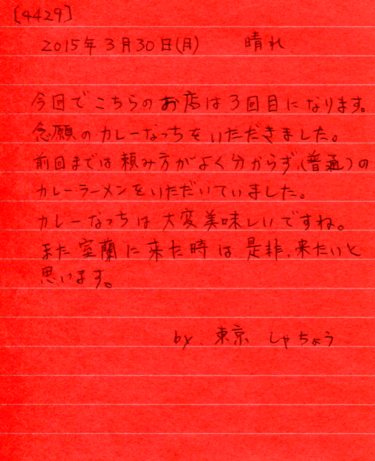 [4429]
2015年3月30日(月) 晴れ
今回でこちらのお店は3回目になります。
念願のカレーなっちをいただきました。
前回までは頼み方がよく分からず、(普通)の
カレーラーメンをいただいていました。
カレーなっちは大変美味しいですね。
また室蘭に来た時は是非、来たいと
思います。
by 東京 しゃちょう